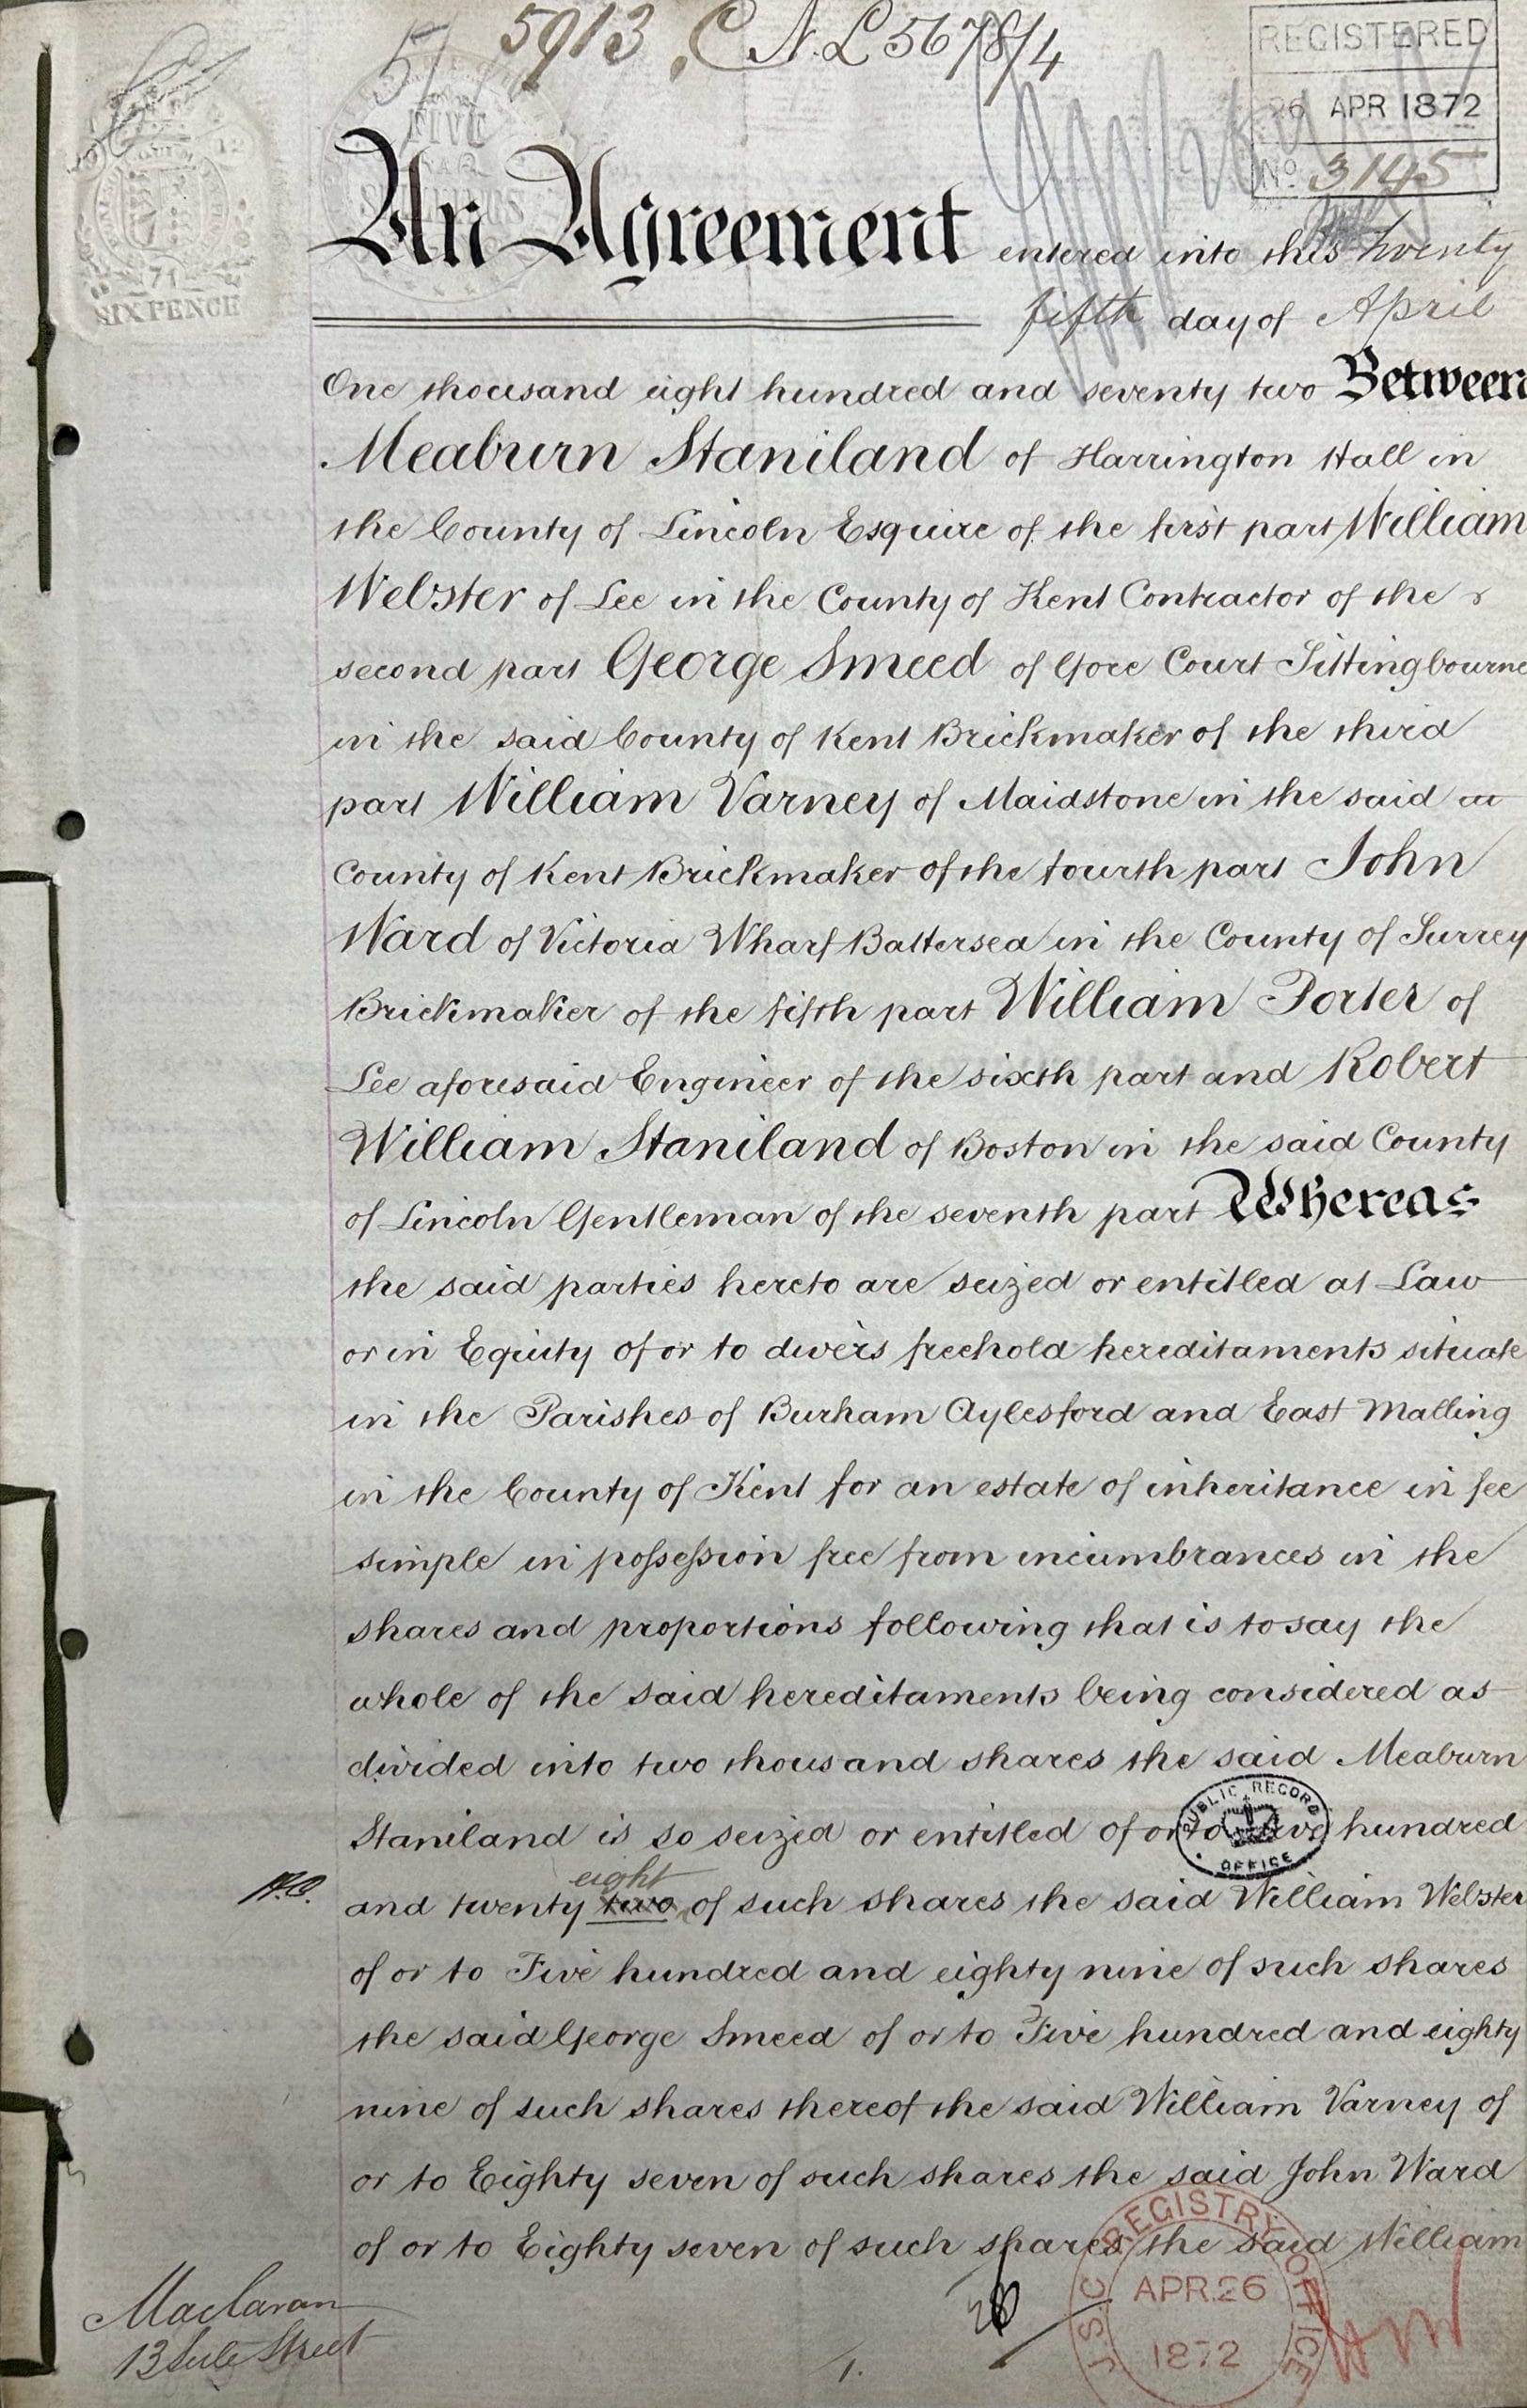 5913 C N. L 5678/4
REGISTERED
26 APR 1872
No 3145
FIVE
SHILLINGS
71
SIX PENCE
An Agreement entered into this twenty
fifth day of April
One thousand eight hundred and seventy two Between
Meaburn Staniland of Harrington Hall in
the County of Lincoln Esquire of the first part William
Webster of Lee in the County of Kent Contractor of the
second part George Smeed of Gore Court Sittingbourne
in the said County of Kent Brickmaker of the third
part William Varney of Maidstone in the said
County of Kent Brickmaker of the fourth part John
Ward of Victoria Wharf Battersea in the County of Surrey
Brickmaker of the fifth part William Porter of
Lee aforesaid Engineer of the sixth part and Robert
William Staniland of Boston in the said County
of Lincoln Gentleman of the seventh part Whereas
the said parties hereto are seized or entitled at Law
or in Equity of or to divers freehold hereditaments situate
in the Parishes of Burham Aylesford and East Malling
in the County of Kent for an estate of inheritance in fee
simple in possession free from incumbrances in the
shares and proportions following that is to say the
whole of the said hereditaments being considered as
divided into two thousand shares the said Meaburn
Staniland is so seized or entitled of or to five hundred
PUBLIC RECORD OFFICE
eight
and twenty two of such shares the said William Webster
of or to Five hundred and eighty nine of such shares
the said George Smeed of or to Five hundred and eighty
nine of such shares thereof the said William Varney of
or to Eighty seven of such shares the said John Ward
of or to Eighty seven of such shares the said William
J.S.C REGISTRY OFFICE
APR.26
1872
Maclaran
13 Street
1.